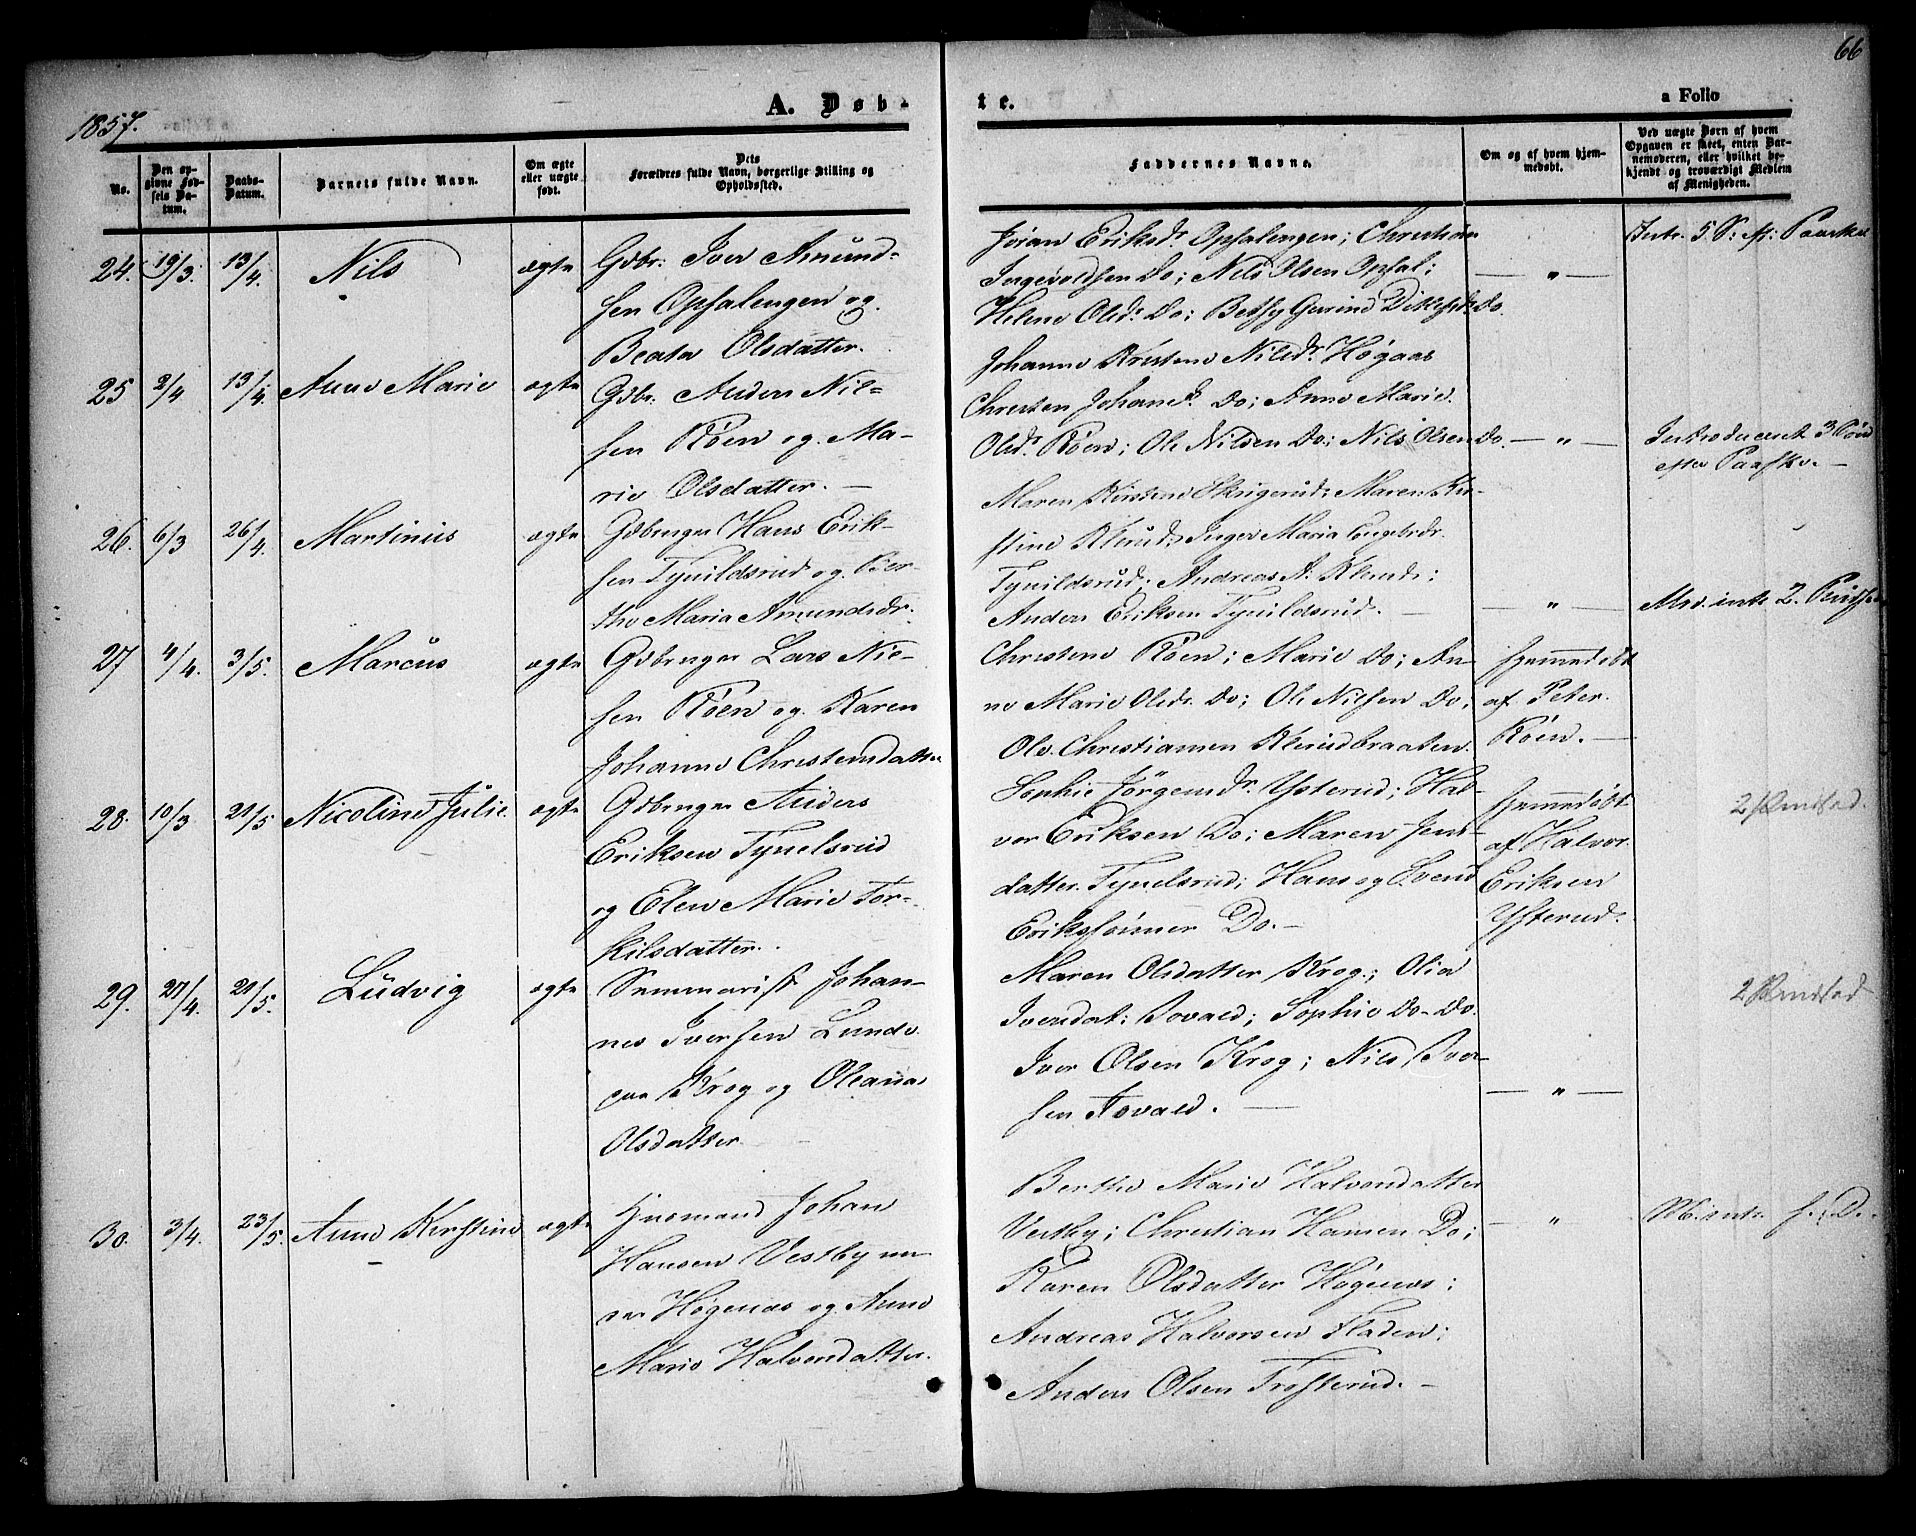 66
1857.
A. Døb-
te.
a Folio
No.
Den op-
givne Fød-
sels Da-
tum.
Daabs-
Datum.
Barnets fulde Navn.
Om ægte
eller uægte
født.
Dets
Forældres fulde Navn, borgerlige Stilling og
Opholdssted.
Faddernes Navne.
Om og af hvem hjem-
medøbt.
Ved uægte Børn af hvem
Opgaven er skeet, enten Bar-
nemoderen, eller hvilket be-
kjendt og troværdigt Medlem
af Menigheden.
24. 19/3. 13/4. Nils ægte
Gdbr: Iver Amund-
sen Opsalengen og
Beata Olsdatter.
Jøran Eriksdr Opsalengen; Christian
Ingevoldsen Do; Nils Olsen Opsal;
Helene Olsdr. Do; Betsy Gurine
Do.
— " —
Intr. 5 S: ef: Paaske
25 2/4 13/4. Anne Marie ægte
Gdbr: Anders Nil-
sen Røen og Ma-
rie Olsdatter. —
Johanne Kirstine Nilsdr. Høgaas
Christen Johansd. Do; Anne Marie
Olsdr. Røen; Ole Nilsen Do; Nils Olsen Do.
— " —
Introduceret 3 Sønd
efter Paaske. —
26. 6/3 26/4. Martinius ægte
Gdbruger Hans Erik-
sen Tynildsrud og Ber-
the Maria Amundsdr.
Maren Kirstine Skrigerud; Maren Kir-
stine Klerud; Inger Maria Engebrdr.
Tynildsrud; Andreas A. Klerud;
Anders Eriksen Tynildsrud. —
— " —
Mod. intr. 2. Pindse
27 4/4. 3/5. Marcus ægte
Gdbruger Lars Nil-
sen Røen og Karen
Johanne Christensdatter
Christine Røen; Marie Do; An-
ne Marie Olsdr. Do; Ole Nilsen Do;
Ole Christiansen Klerudbraaten.
Hjemmedøbt
af Peter
Røen. —
28. 10/3 21/5. Nicoline Julie. ægte
Gdbruger Anders
Eriksen Tynelsrud
og Elen Marie Tor-
kilsdatter.
Sophie Jörgensdr. Ysterud; Hal-
vor Eriksen Do; Maren Jens-
datter Tynelsrud; Hans og Svend
Erikssönner Do. —
Hjemmedøbt
af Halvor
Eriksen
Ysterud.
29. 27/4. 21/5. Ludvig ægte
Seminarist Johan-
nes Iversen Lunde
paa Krog og Oleana
Olsdatter
Maren Olsdatter Krog; Olia
Iversdat: Sovald; Sophie Do. Do.
Iver Olsen Krog; Nils Iver-
sen Sovald. —
— " —
30. 3/4. 23/5. Anne Kirstine ægte
Huusmand Johan
Hansen Vestby un-
der Høgenæs og Anne
Marie Halvorsdatter.
Berthe Marie Halvorsdatter
Vestby; Christian Hansen Do;
Karen Olsdatter Høgenæs;
Andreas Halvorsen Fladen;
Anders Olsen Trosterud. —
— " —
M. intr. s. D.